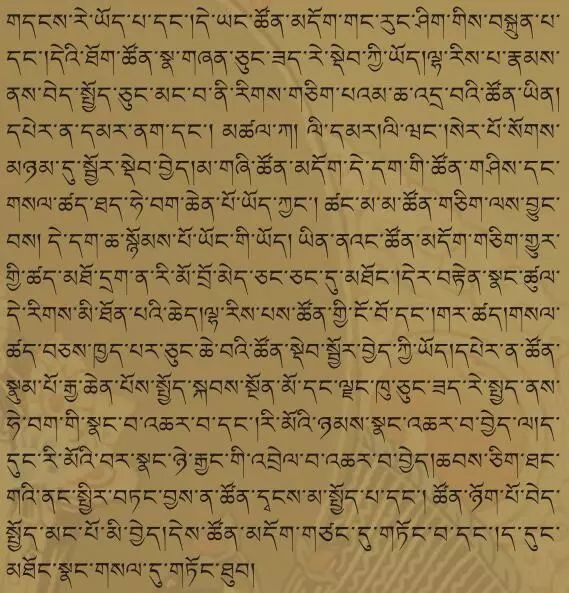 གདངས་རེ་ཡོད་པ་དང་།དེ་ཡང་ཚོན་མདོག་གང་རུང་ཤིག་གིས་བསྐྲུན་པ་
དང་།དེའི་ཐོག་ཚོན་སྣ་གཞན་ཅུང་ཟད་རེ་སྡེབ་ཀྱི་ཡོད།ལྷ་རིས་པ་རྣམས་
ནས་བེད་སྤྱོད་ཅུང་མང་བ་ནི་རིགས་གཅིག་པའམ་ཆ་འདྲ་བའི་ཚོན་ཡིན།
དཔེར་ན་དམར་ནག་དང་། མཚལ་ཀ། ལི་དམར།ལི་ཝང་།སེར་པོ་སོགས་
མཉམ་དུ་སྦྱོར་སྡེབ་བྱེད།མ་གཞི་ཚོན་མདོག་དེ་དག་གི་ཚོན་གཤིས་དང་
གསལ་ཚད་ཐད་ཧེ་བག་ཆེན་པོ་ཡོད་ཀྱང་། ཚང་མ་མ་ཚོན་གཅིག་ལས་བྱུང་
བས། དེ་དག་ཆ་སྙོམས་པོ་ཡོང་གི་ཡོད། ཡིན་ནའང་ཚོན་མདོག་གཅིག་གྱུར་
གྱི་ཚད་མཐོ་དྲག་ན་རི་མོ་བྲོ་མེད་ཅང་ཅང་དུ་མཐོང་།དེར་བརྟེན་སྣང་ཚུལ་
དེ་རིགས་མི་ཐོན་པའི་ཆེད།ལྷ་རིས་པས་ཚོན་གྱི་ངོ་བོ་དང་།གར་ཚད།གསལ་
ཚད་བཅས་ཁྱད་པར་ཅུང་ཆེ་བའི་ཚོན་སྡེབ་སྦྱོར་བྱེད་ཀྱི་ཡོད།དཔེར་ན་ཚོན་
སྣུམ་པོ་རྒྱ་ཆེན་པོས་སྤྱོད་སྐབས་སྔོན་མོ་དང་ལྗང་ཁུ་ཅུང་ཟད་རེ་སྤྱད་ནས་
ཧེ་བག་གི་སྣང་བ་འཆར་བ་དང་།རི་མོའི་ཉམས་སྣང་འཆར་བ་བྱེད་ལ།ད་
དུང་རི་མོའི་བར་སྣང་ཉེ་རྒྱང་གི་འབྲེལ་བ་འཆར་བ་བྱེད།ཆབས་ཅིག་ཐང་
གའི་ནང་སྤྱིར་བཏང་བྱས་ན་ཚོན་དྭངས་མ་སྤྱོད་པ་དང་། ཚོན་ཉོག་པོ་བེད་
སྤྱོད་མང་པོ་མི་བྱེད།དེས་ཚོན་མདོག་གཙང་དུ་གཏོང་བ་དང་།ད་དུང་
མཐོང་སྣང་གསལ་དུ་གཏོང་ཐུབ།